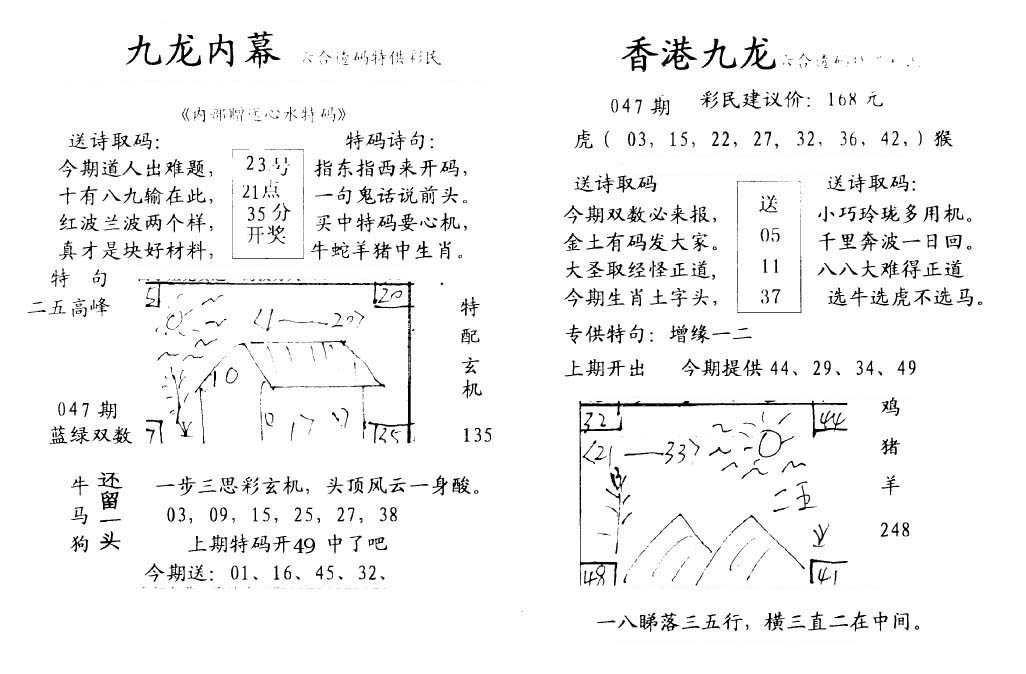 九龙内幕 六合透码特供彩民
《内部赠送心水特码》
送诗取码：
今期道人出难题，
十有八九输在此，
红波兰波两个样，
真才是块好材料，
23号
21点
35分
开奖
特码诗句：
指东指西来开码，
一句鬼话说前头。
买中特码要心机，
牛蛇羊猪中生肖。
特 句
二五高峰
047期
蓝绿双数
5
20
<1——20>
10
7
35
特
配
玄
机
135
牛
马
狗
还留一头
一步三思彩玄机，头顶风云一身酸。
03, 09, 15, 25, 27, 38
上期特码开49 中了吧
今期送：01、16、45、32、
香港九龙 六合透码
047期 彩民建议价：168元
虎（ 03, 15, 22, 27, 32, 36, 42,）猴
送诗取码
今期双数必来报，
金土有码发大家。
大圣取经怪正道，
今期生肖土字头，
送
05
11
37
送诗取码：
小巧玲珑多用机。
千里奔波一日回。
八八大难得正道
选牛选虎不选马。
专供特句：增缘一二
上期开出 今期提供44、29、34、49
32
44
<21——33>
二五
48
41
鸡
猪
羊
248
一八睇落三五行，横三直二在中间。